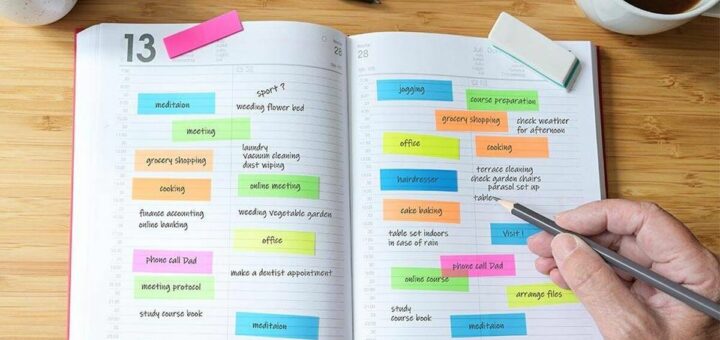 13
28
28
sport?
meditaion
weeding flower bed
meeting
laundry
vacuum cleaning
dust wiping
grocery shopping
cooking
online meeting
finance accounting
online banking
weeding vegetable garden
office
phone call Dad
make a dentist appointment
meeting protocol
study course book
meditaion
jogging
course preparation
grocery shopping
check weather
for afternoon
office
cooking
terrace cleaning
check garden chairs
parasol set up
table
hairdresser
cake baking
table set indoors
in case of rain
Visit!
phone call Dad
online course
arrange files
study
course book
meditaion